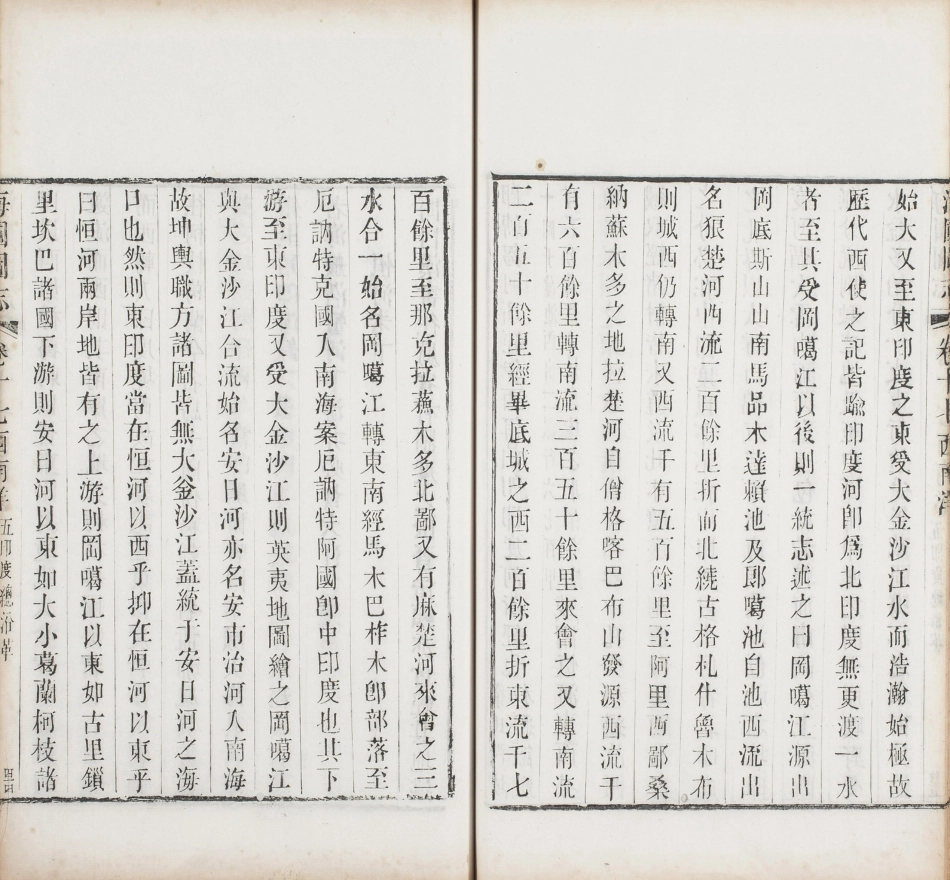 海國圖志 卷十七 西南洋
始大又至東印度之東受大金沙江水而浩瀚始極故
歷代西使之記皆踰印度河卽爲北印度無更渡一水
者至其受岡噶江以後則一統志述之曰岡噶江源出
岡底斯山山南馬品木達賴池及郎噶池自池西流出
名狼楚河西流二百餘里折而北繞古格札什魯木布
則城西仍轉南又西流千有五百餘里至阿里西鄙桑
納蘇木多之地拉楚河自僧格喀巴布山發源西流千
有六百餘里轉南流三百五十餘里來會之又轉南流
二百五十餘里經畢底城之西二百餘里折東流千七
百餘里至那克拉蘓木多北鄙又有麻楚河來會之三
水合一始名岡噶江轉東南經馬木巴柞木卽部落至
厄訥特克國入南海案厄訥特阿國卽中印度也其下
游至東印度又受大金沙江則英夷地圖繪之岡噶江
與大金沙江合流始名安日河亦名安市治河入南海
故坤輿職方諸圖皆無大金沙江蓋統于安日河之海
口也然則東印度當在恒河以西乎抑在恒河以東乎
曰恒河兩岸地皆有之上游則岡噶江以東如古里鎖
里坎巴諸國下游則安日河以東如大小葛蘭柯枝諸
海國圖志 卷十七 西南洋 五印度總沿革